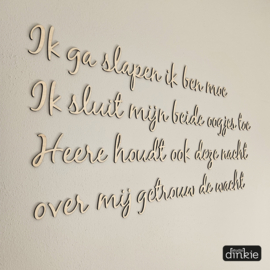 Ik ga slapen ik ben moe
Ik sluit mijn beide oogjes toe
Heere houdt ook deze nacht
over mij getrouw de wacht
dinkie